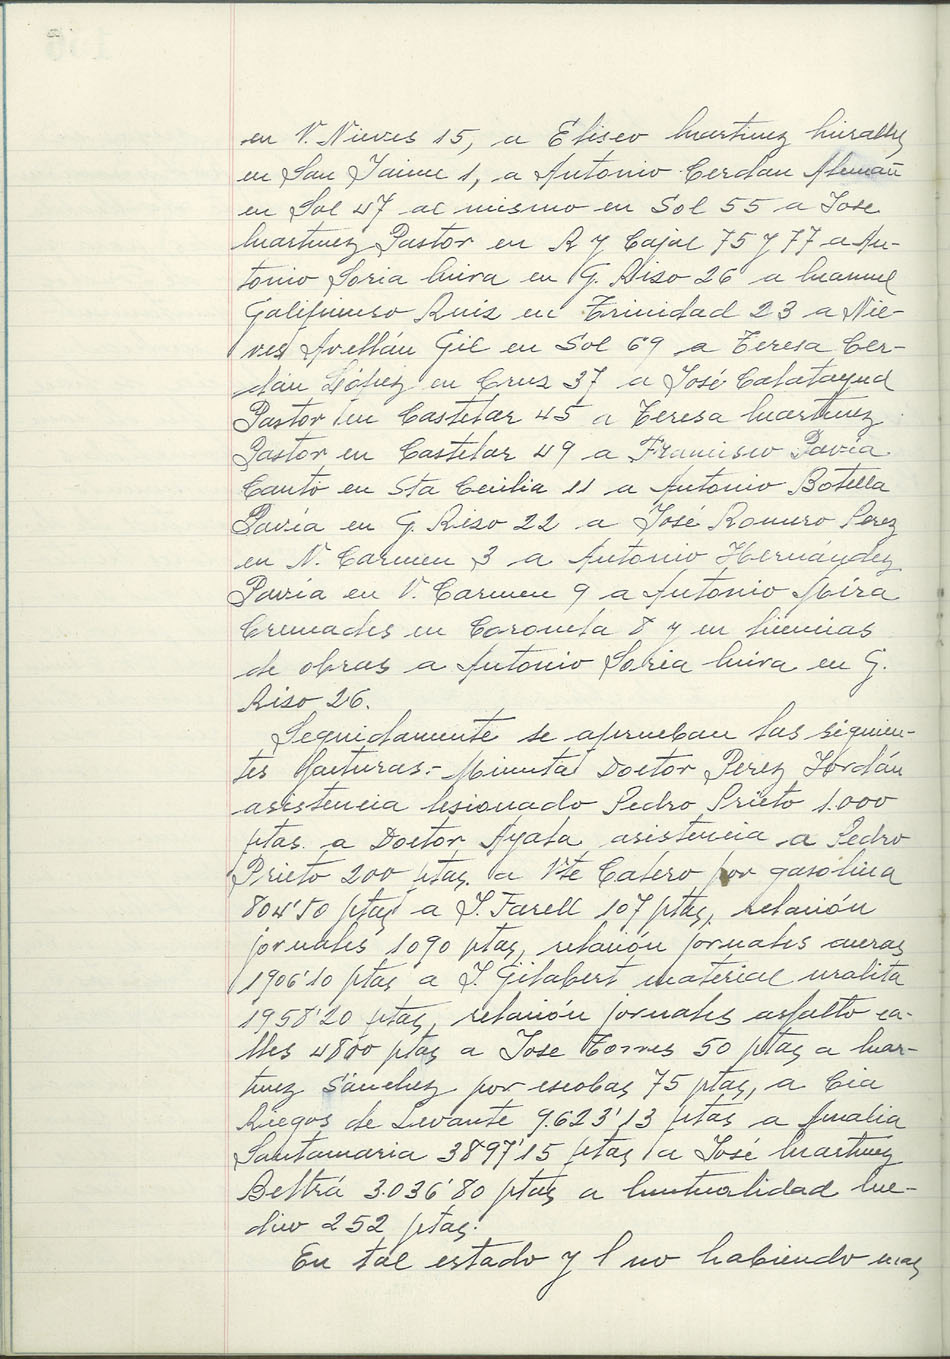 en V. Nieves 15, a Eliseo Martinez Miralles
en San Jaime 1, a Antonio Cerdan Alemañ
en Sol 47 al mismo en Sol 55 a Jose
Martinez Pastor en R y Cajal 75 y 77 a An-
tonio Soria Mira en G. Riso 26 a Manuel
Galifienso Ruiz en Trinidad 23 a Nie-
ves Avellán Gil en Sol 69 a Teresa Cer-
dán López en Cruz 37 a José Calatayud
Pastor en Castelar 45 a Teresa Martinez
Pastor en Castelar 49 a Francisco Pavía
Cantó en Sta Cecilia 11 a Antonio Botella
Pavía en G. Riso 22 a José Romero Perez
en V. Carmen 3 a Antonio Hernández
Pavía en V. Carmen 9 a Antonio Mira
Cremades en Coroneta 8 y en licencias
de obras a Antonio Soria Mira en G.
Riso 26.
Seguidamente se aprueban las siguien-
tes facturas:- Minuta Doctor Perez Jordán
asistencia lesionado Pedro Prieto 1.000
ptas. a Doctor Ayala asistencia a Pedro
Prieto 200 ptas. a Vte Calero por gasolina
804'50 ptas a J. Farell 107 ptas, relación
jornales 1090 ptas, relación jornales aceras
1906'10 ptas a J. Gilabert material uralita
1958'20 ptas, relación jornales asfalto ca-
lles 4800 ptas a Jose Torres 50 ptas a Mar-
tinez Sánchez por escobas 75 ptas, a Cia
Riegos de Levante 9.623'13 ptas a Amalia
Santamaria 3897'15 ptas a José Martinez
Beltrá 3.036'80 ptas a Mutualidad Me-
dico 252 ptas.
En tal estado y no habiendo mas